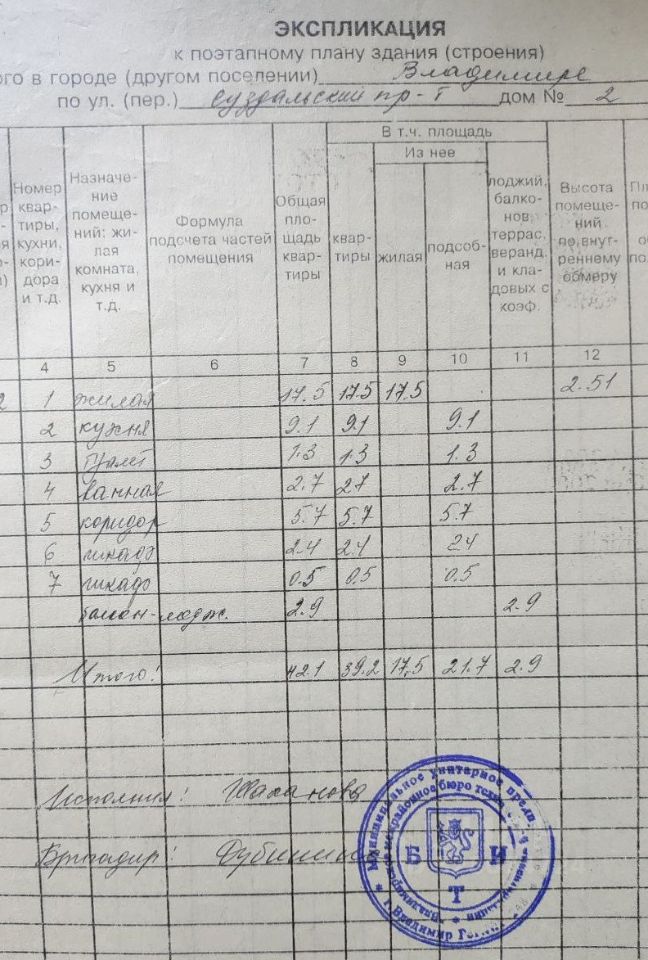 ЭКСПЛИКАЦИЯ
к поэтапному плану здания (строения)
ого в городе (другом поселении) Владимире
по ул. (пер.) Суздальский пр-т дом № 2
В т.ч. площадь
Из нее
Номер квар- тиры, кухни, кори- дора и т.д.
Назначе- ние помеще- ний: жи- лая комната, кухня и т.д.
Формула подсчета частей помещения
Общая пло- щадь квар- тиры
квар- тиры
жилая
подсоб- ная
лоджий, балко- нов, террас, веранд и кла- довых с коэф.
Высота помеще- ний по внут- реннему обмеру
4 5 6 7 8 9 10 11 12
1 жилая 17.5 17.5 17.5 2.51
2 кухня 9.1 9.1 9.1
3 туалет 1.3 1.3 1.3
4 ванная 2.7 2.7 2.7
5 коридор 5.7 5.7 5.7
6 шкаф 2.4 2.4 2.4
7 шкаф 0.5 0.5 0.5
балкон-лодж. 2.9 2.9
Итого: 42.1 39.2 17,5 21.7 2.9
Исполнил:
Бригадир:
Муниципальное унитарное предп
Владимирское межрайонное бюро техн
БИТ
г. Владимир